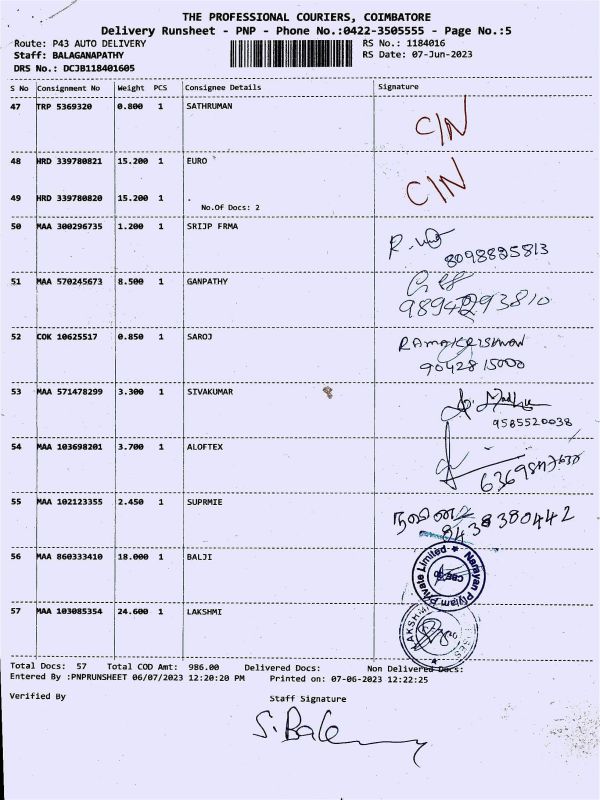 THE PROFESSIONAL COURIERS, COIMBATORE
Delivery Runsheet - PNP - Phone No.:0422-3505555 - Page No.:5
Route: P43 AUTO DELIVERY RS No.: 1184016
Staff: BALAGANAPATHY RS Date: 07-Jun-2023
DRS No.: DCJB118401605
S No Consignment No Weight PCS Consignee Details Signature
47 TRP 5369320 0.800 1 SATHRUMAN
C/N
48 HRD 339780821 15.200 1 EURO
C/N
49 HRD 339780820 15.200 1 .
No.Of Docs: 2
50 MAA 300296735 1.200 1 SRIJP FRMA
8098825813
51 MAA 570245673 8.500 1 GANPATHY
52 COK 10625517 0.850 1 SAROJ
RAMAKRISHNAN
9042815000
53 MAA 571478299 3.300 1 SIVAKUMAR
9585520038
54 MAA 103698201 3.700 1 ALOFTEX
55 MAA 102123355 2.450 1 SUPRMIE
9438380442
56 MAA 860333410 18.000 1 BALJI
Private Limited ★ Narayan
57 MAA 103085354 24.600 1 LAKSHMI
Total Docs: 57 Total COD Amt: 986.00 Delivered Docs: Non Delivered Docs:
Entered By :PNPRUNSHEET 06/07/2023 12:20:20 PM Printed on: 07-06-2023 12:22:25
Verified By Staff Signature
S. Bale